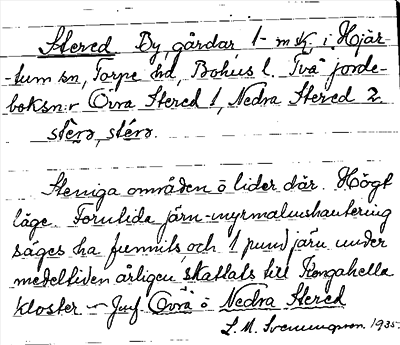 Stered By, gårdar 1-m tk i Hjär-
-tum sn, Torpe hd, Bohus l. Två jorde-
boksn:r Övra Stered 1, Nedra Stered 2.
Steniga områden ö lider där. Högt
läge. Forntida järn-myrmalmshantering
säges ha funnits, och 1 pund järn under
medeltiden årligen skattats till Kongahella
kloster — Jmf Övra ö Nedra Stered
L. M. Svenungsson. 1935.